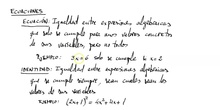 ECUACIONES
ECUACIÓN: Igualdad entre expresiones algebraicas
que solo se cumple para unos valores concretos
de sus variables, pero no todos
EJEMPLO: 3x=6 solo se cumple si x=2
IDENTIDAD: Igualdad entre expresiones algebraicas
que se cumple siempre, sean cuales sean los
valores de sus variables
EJEMPLO: (2x+1)²=4x²+4x+1